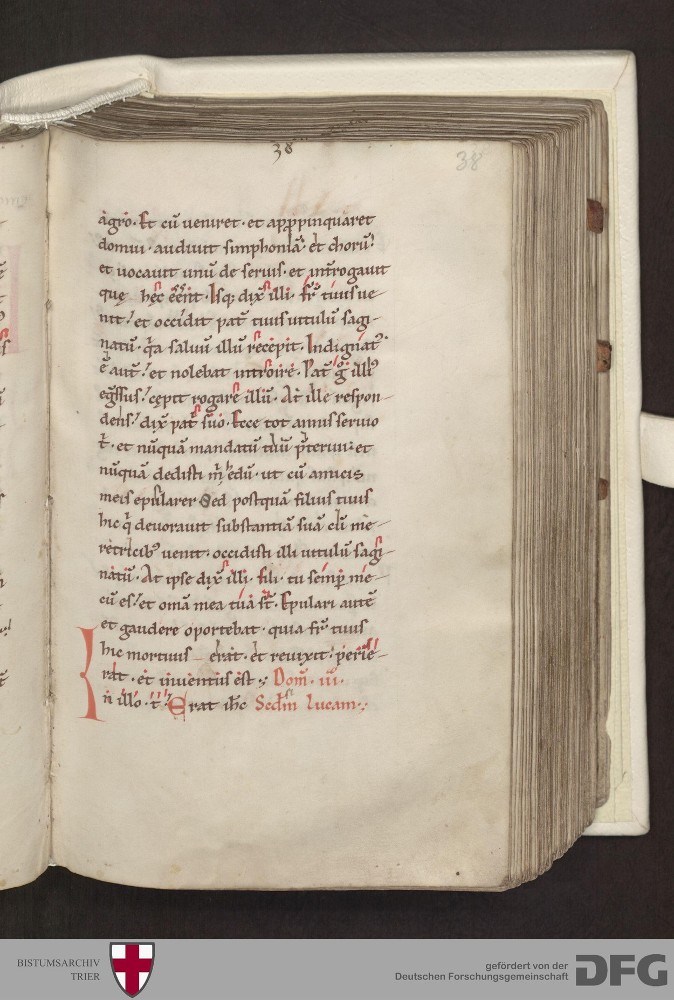 38
38
agro. Et cū ueniret. et appropinquaret
domui. audiuit simphoniā. et chorū.
et uocauit unū de seruis. et int̄rogauit
quę hęc eēnt. Isq; dix̄ illi. fr̄ tuus ue-
nit. et occidit pat̄ tuus uitulū sagi-
natū. q̇a saluū illū recepit. Indignat᷒
ē aut̄. et nolebat introire. Pat̄ g̊ illi᷒
egs̄sus. cępit rogare illū. At ille respon-
dens. dix̄ pat̄ suo. Ecce tot annis seruio
t̄. et nūquā mandatū tuū p̄teriui. et
nūquā dedisti m̄ edū. ut cū amicis
meis epularer Sed postquā filius tuus
hic q̇ deuorauit substantiā suā cū me-
retricib᷒ uenit. occidisti illi uitulū sagi-
natū. At ipse dix̄ illi. fili. tu semp̄ me-
cū es. et om̄a mea tua st̄. Epulari autē
et gaudere oportebat. quia fr̄ tuus
hic mortuus erat. et reuixit. perie-
rat. et inuentus est. Dom̄. iii.
In illo. t̄. Erat ih̄c Scd̄m lucam.
BISTUMSARCHIV
TRIER
gefördert von der
Deutschen Forschungsgemeinschaft
DFG